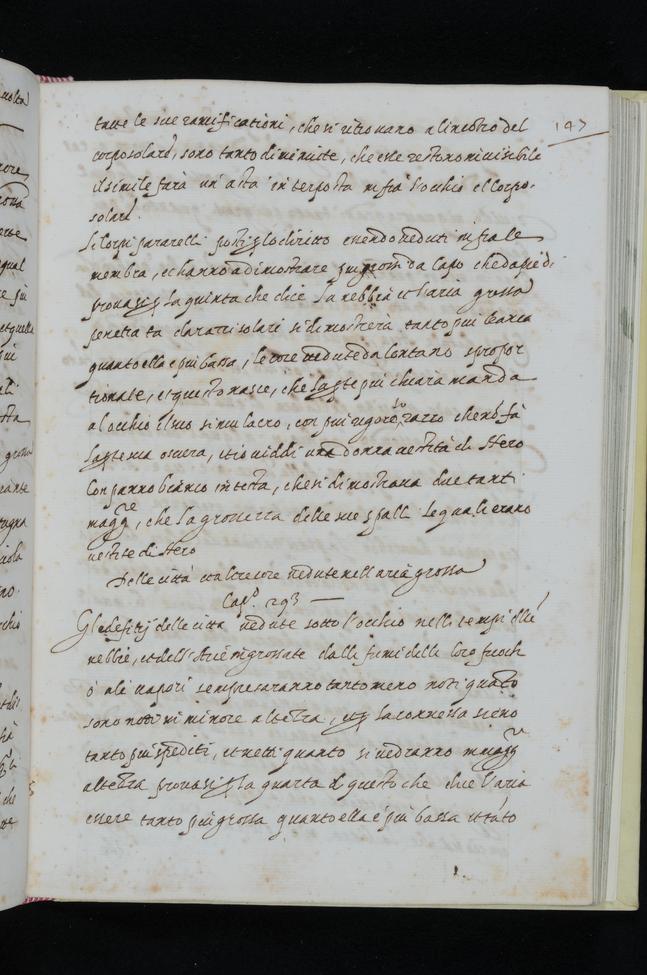 147
tutte le sue ramificationi, che si ritrouano alincōtro del
corpo solare, sono tanto diminuite, che esse restono inuisibile
il simile farà un' asta interposta infrà l'occhio e'l corpo
solare.
Li corpi pararelli posti p lo diritto essendo ueduti infra le
nembia, et hanno a dimostrare piu grossi da capo che da piedi
prouasi p la quinta che dice la nebbia et l'aria grossa
penetrata da razzi solari si dimosterà tanto piu bianca
quanto ella è piu bassa, le cose uedute da lontano spropor
tionate, et questo nasce, che la pte piu chiara manda
al occhio il suo simulacro, con piu uigoroso razzo che nō fà
la pte sua oscura, et io uiddi una donna uestita di Nero
Con panno bianco in testa, che si dimostraua due tanti
magg.re, che la grossezza delle sue spalle le quali erano
uestite di Nero
Delle città et altre cose uedute nell'aria grossa
Cap.o 293
Gl'edefitij delle citta uedute sotto l'occhio nelli tempi delle
nebbie, et dell'Arie ingrossate dalle fumi delle loro fuochi
ò altri uapori sempre saranno tanto meno noti quāto
sono noti in minore altezza, et p la conuersa sieno
tanto piu spediti, et netti quanto si uedranno in magg.r
altezza prouasi p la quarta di questo che dice l'aria
essere tanto piu grossa quanto ella è piu bassa et tāto